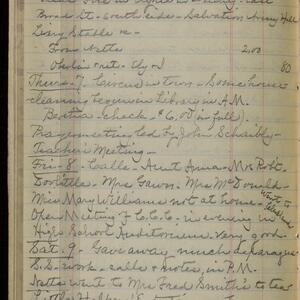 Broad St. - South Side - Salvation Army Hall
Livery Stable
From Netta 2.00
80
Thurs - 7. Circus in town - Some house
cleaning begun in Library in A.M.
Bertha - check - $6.00 (in full).
Prayer meeting led by John Schaibly -
Teacher's Meeting -
Fri - 8. Calls - Aunt Anna - Mrs Robt.
Doolittle - Mrs Fawn. Mrs McDonald -
Miss Mary Williams not at home -
Open Meeting of C.C.C. in evening in
High School Auditorium. Very good -
Sat. 9 - Gave away much asparagus
S.S. work - calls & notes, in P.M.
Netta went to Mrs Fred Smith's to tea